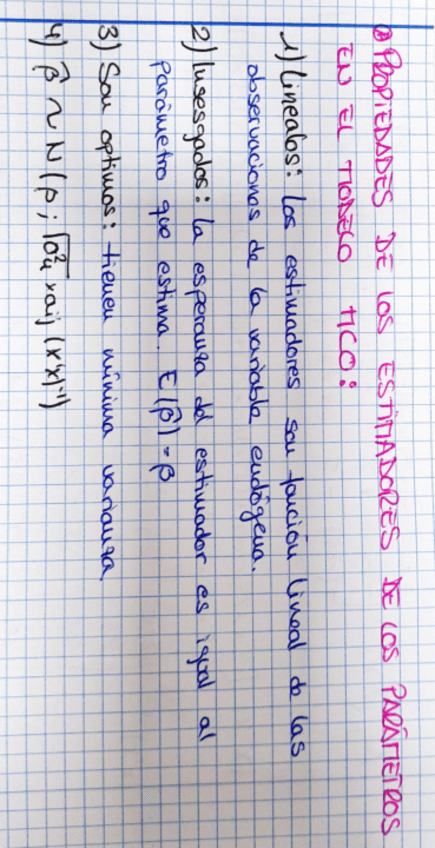 ⑧ PROPIEDADES DE LOS ESTIMADORES DE LOS PARÁMETROS
EN EL MODELO MCO:
1) Lineales: Los estimadores son función lineal de las
observaciones de la variable endógena.
2) Insesgados: La esperanza del estimador es igual al
parámetro que estima. E(β̂) = β
3) Son optimos: tienen mínima varianza
4) β̂ ~ N(β; √σ²u × aij (x'x)⁻¹)